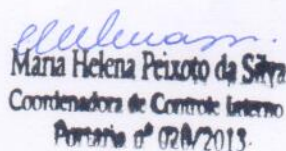 Maria Helena Peixoto da Silva
Coordenadora de Controle Interno
Portaria nº /2013